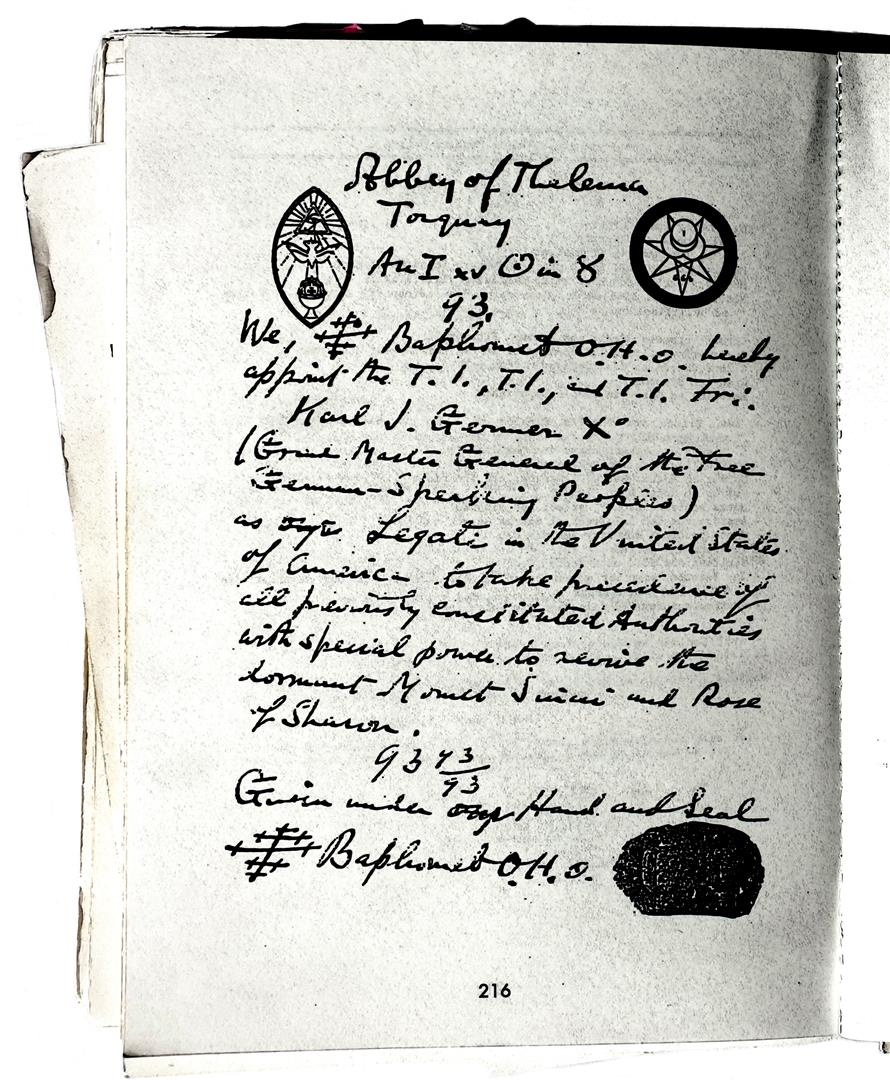 Abbey of Thelema
Torquay
An I xv ☉ in ♉
93.
We, Baphomet O.H.O. hereby
appoint the T.I., T.I., and T.I. Fr∴
Karl J. Germer X°
(Grand Master General of the Free
German-Speaking Peoples)
as our Legate in the United States
of America to take precedence of
all previously constituted Authorities
with special power to revive the
dormant Mount Sinai and Rose
of Sharon.
93 93/93
Given under our Hand and Seal
Baphomet O.H.O.
216